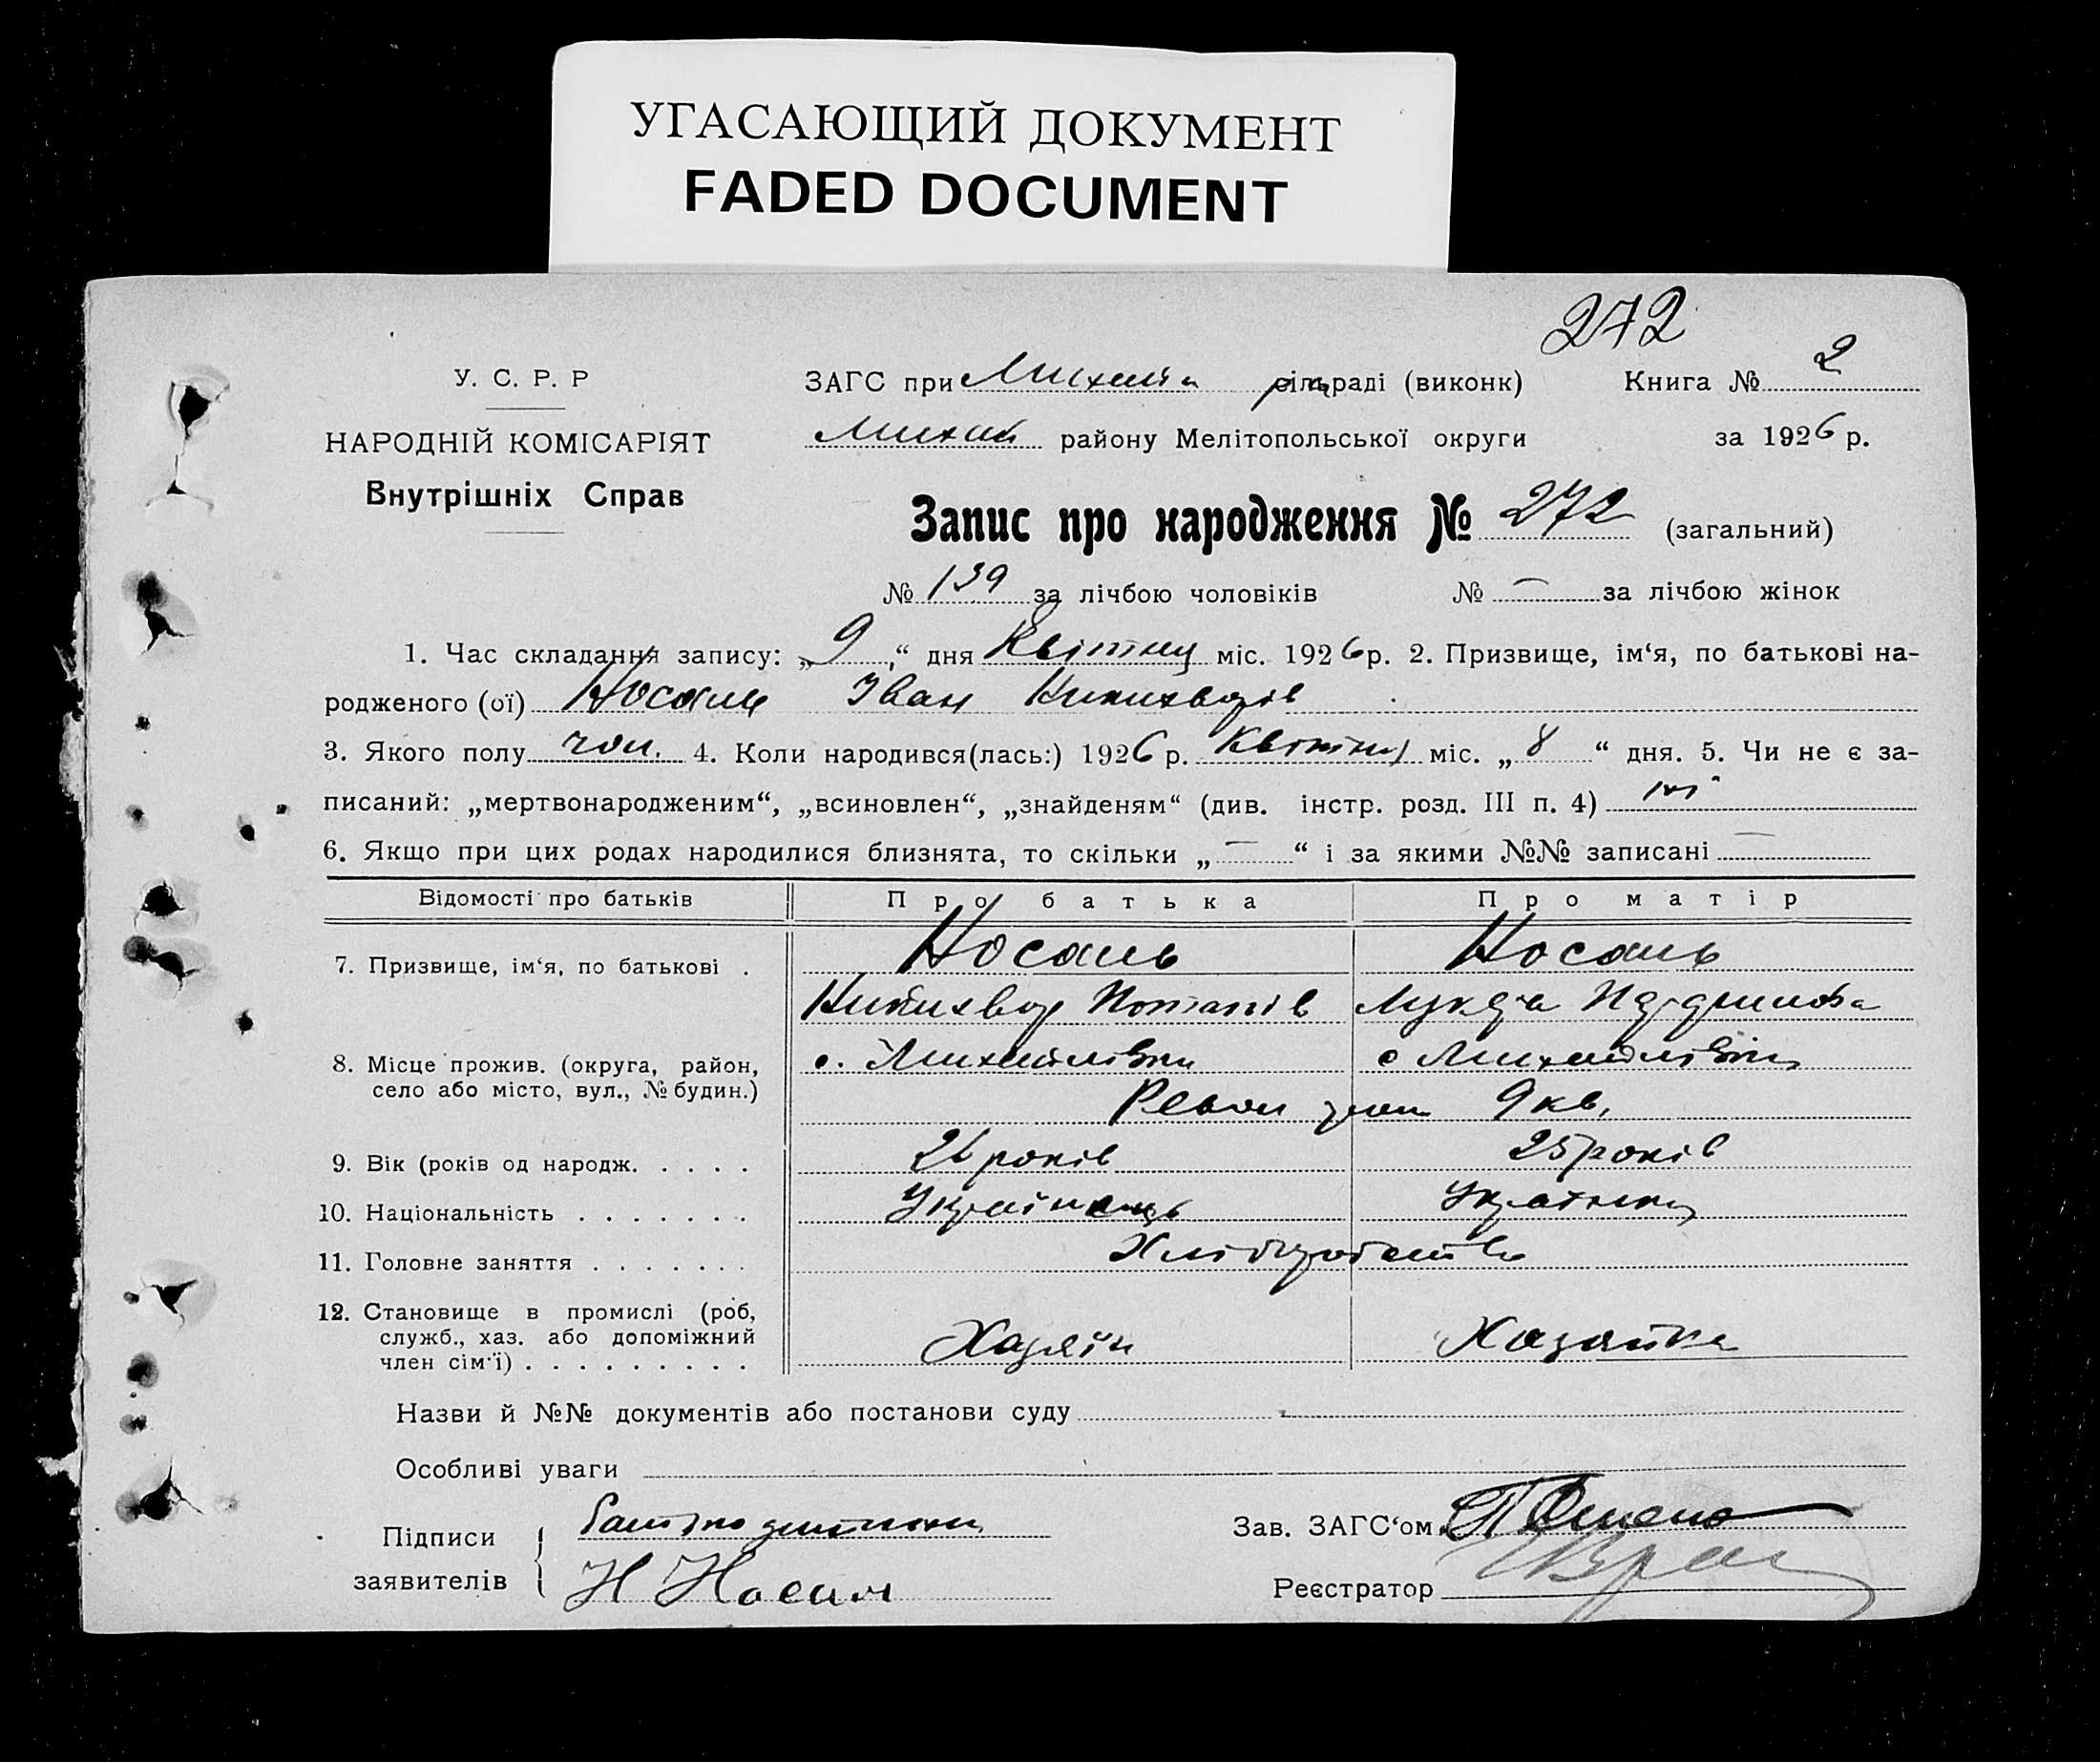 УГАСАЮЩИЙ ДОКУМЕНТ
FADED DOCUMENT
272
У. С. Р. Р
ЗАГС при сільраді (виконк) Книга № 2
НАРОДНІЙ КОМІСАРІЯТ
району Мелітопольської округи за 1926 р.
Внутрішніх Справ
Запис про народження № 272 (загальний)
№ 139 за лічбою чоловіків № — за лічбою жінок
1. Час складання запису: „9“ дня Квітня міс. 1926 р. 2. Призвище, ім‘я, по батькові на-
родженого (ої) Носаль Іван
3. Якого полу чол. 4. Коли народився(лась:) 1926 р. Квітня міс. „8“ дня. 5. Чи не є за-
писаний: „мертвонародженим“, „всиновлен“, „знайденям“ (див. інстр. розд. III п. 4) ні
6. Якщо при цих родах народилися близнята, то скільки „—“ і за якими №№ записані —
Відомості про батьків Про батька Про матір
7. Призвище, ім‘я, по батькові . Носаль Носаль
Потапів
8. Місце прожив. (округа, район, с. Михайлівки с Михайлівки
село або місто, вул., № будин.) 9 кв.
9. Вік (років од народж. . . . . 26 років 25 років
10. Національність . . . . . . . Українець Українка
11. Головне заняття . . . . . . . Хліборобство
12. Становище в промислі (роб,
служб., хаз. або допоміжний Хазяїн Хазяйка
член сім‘ї) . . . . . . . . .
Назви й №№ документів або постанови суду
Особливі уваги
Підписи
заявителів Н Носаль
Зав. ЗАГС‘ом
Реєстратор